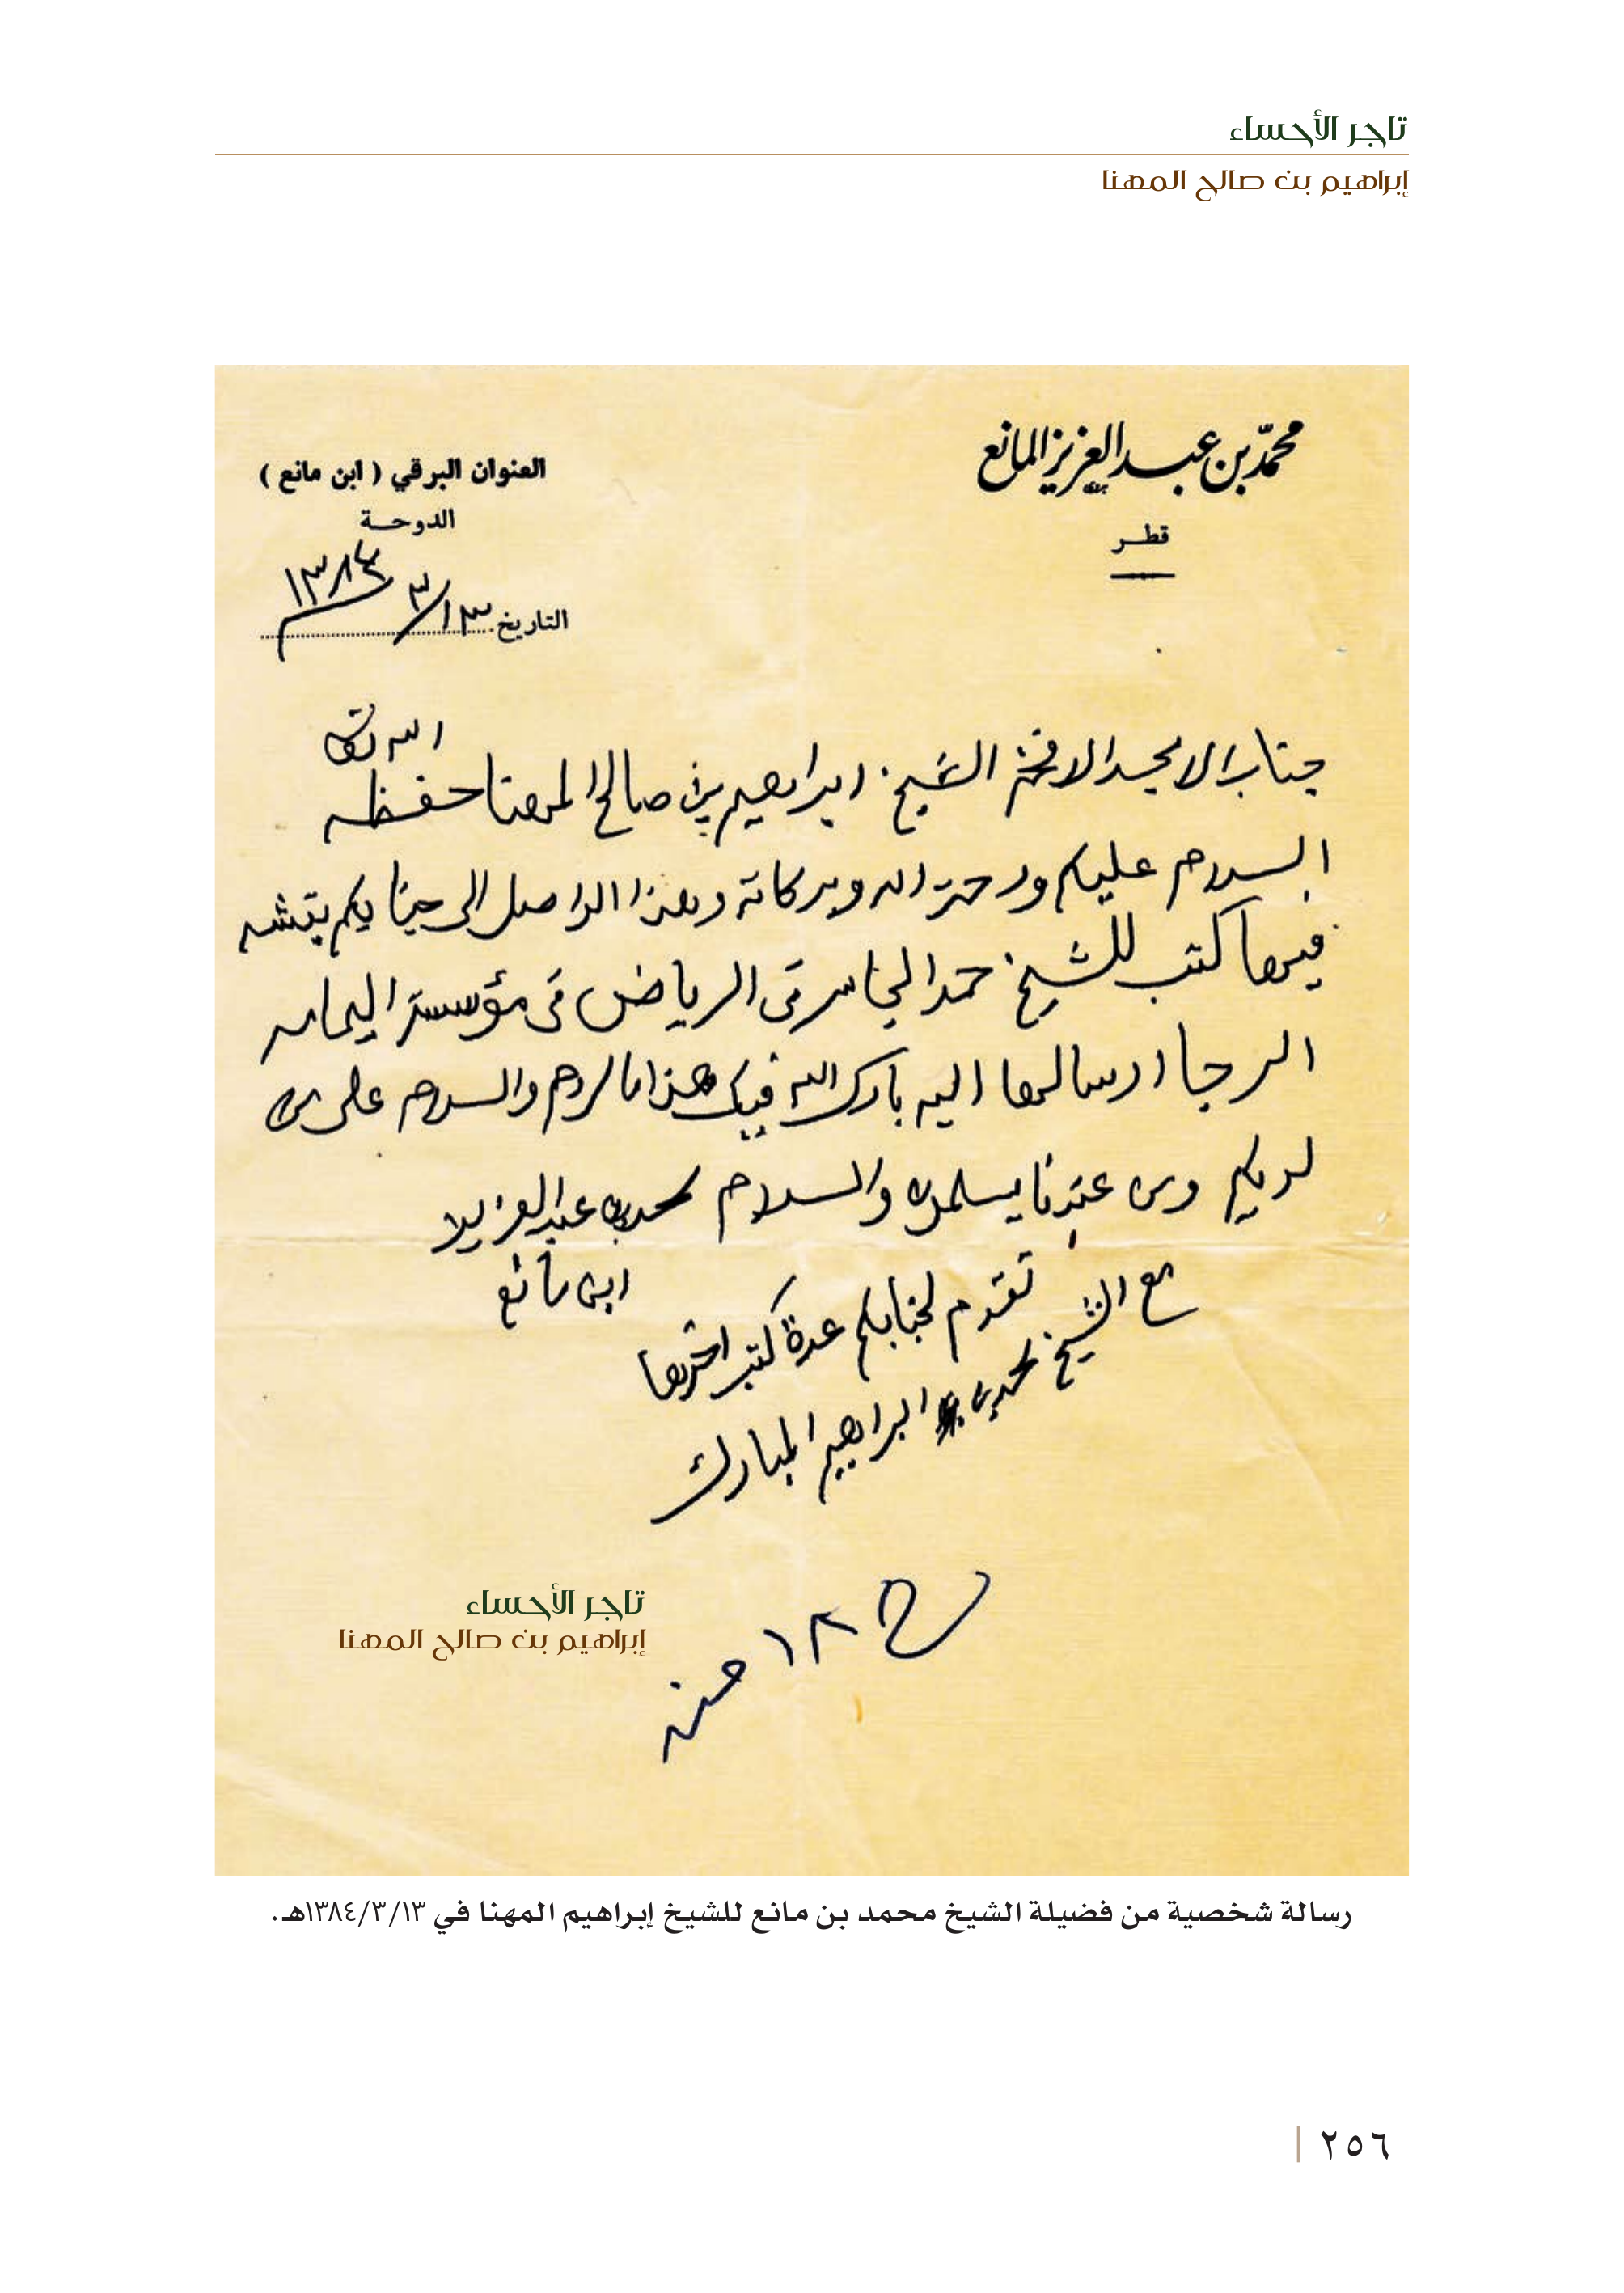 تاجر الأحساء
إبراهيم بن صالح المهنا
محمد بن عبد العزيز المانع
قطر
العنوان البرقي ( ابن مانع )
الدوحة
التاريخ ١٣/٣/١٣٨٤
جناب الامجد الافخم الشيخ ابراهيم بن صالح المهنا حفظه الله تعالى
السلام عليكم ورحمة الله وبركاته وهذا الواصل الى جنابكم بقشه
فيها كتب للشيخ حمد الجاسر في الرياض في مؤسسة اليمامه
الرجا ارسالها اليه بارك الله فيك هذا ما لزم والسلام على من
لديكم ومن عندنا يسلمون والسلام محمد بن عبد العزيز
ابن مانع
تقدم لجنابكم عدة كتب اخرها
مع الشيخ محمد بن ابراهيم المبارك
١٨ منه
تاجر الأحساء
إبراهيم بن صالح المهنا
رسالة شخصية من فضيلة الشيخ محمد بن مانع للشيخ إبراهيم المهنا في ١٣٨٤/٣/١٣هـ.
٢٥٦